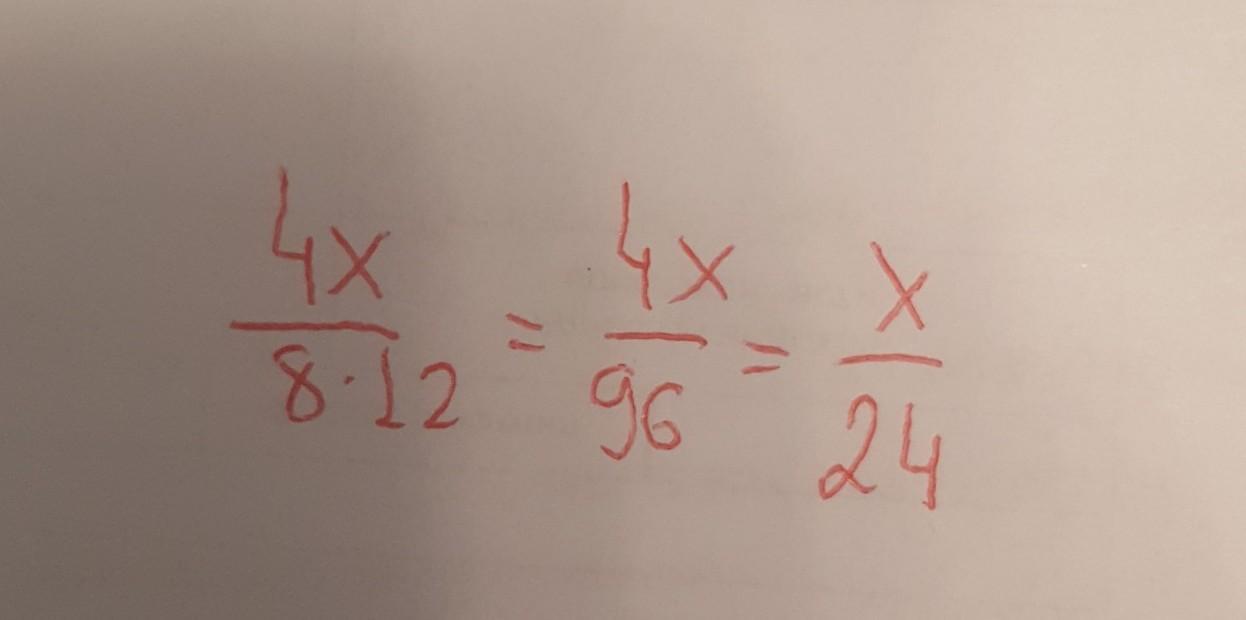 4x/8·12 = 4x/96 = x/24